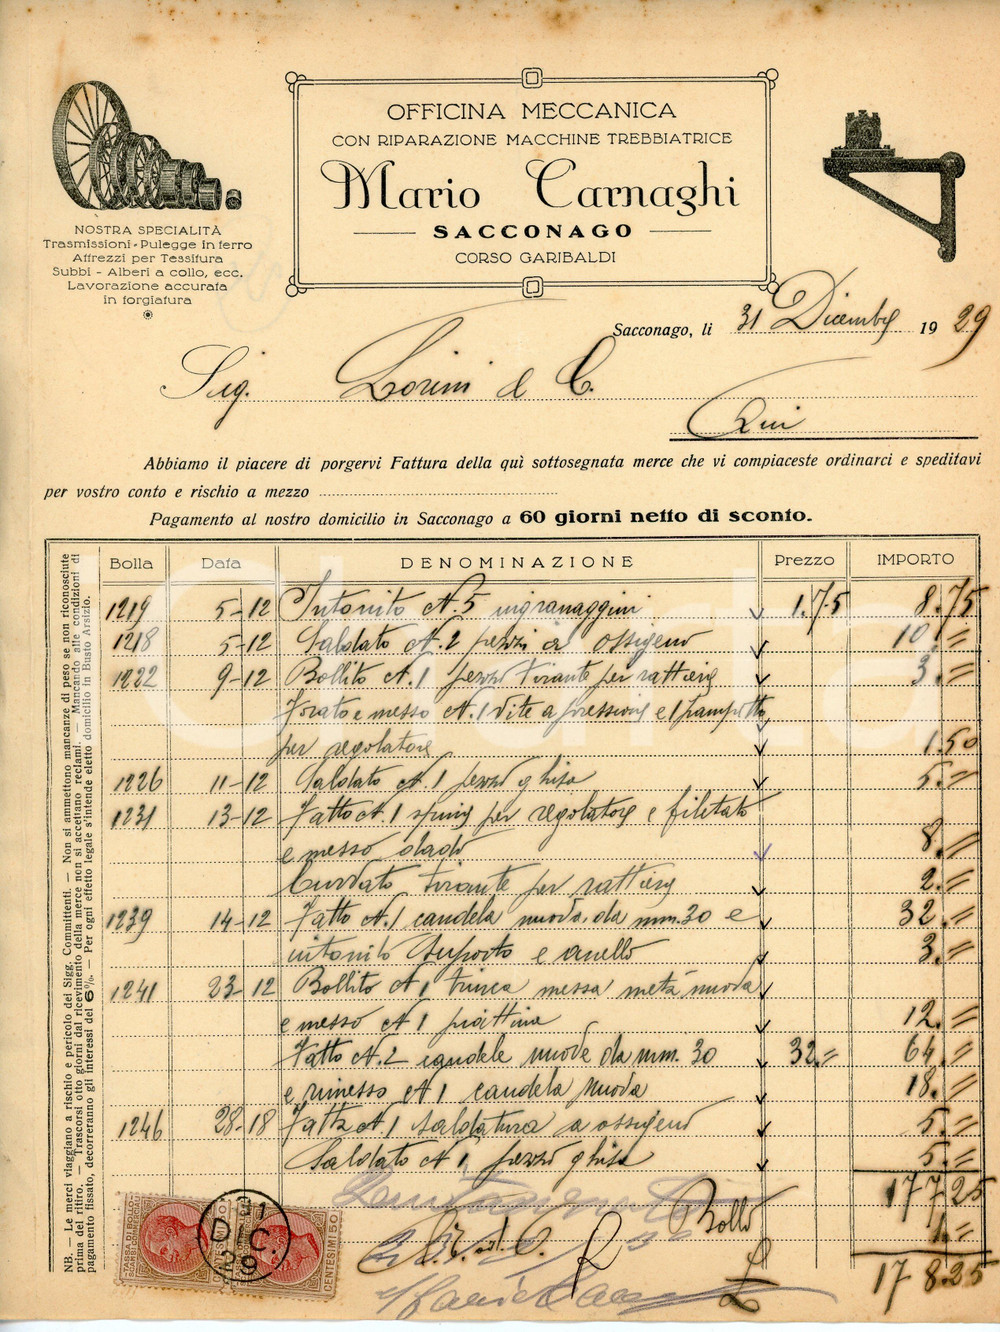 OFFICINA MECCANICA
CON RIPARAZIONE MACCHINE TREBBIATRICE
Mario Carnaghi
SACCONAGO
CORSO GARIBALDI
NOSTRA SPECIALITÀ
Trasmissioni - Pulegge in ferro
Attrezzi per Tessitura
Subbi - Alberi a collo, ecc.
Lavorazione accurata
in forgiatura
Sacconago, li 31 Dicembre 1929
Sig. Lorini & C.
Qui
Abbiamo il piacere di porgervi Fattura della quì sottosegnata merce che vi compiaceste ordinarci e speditavi
per vostro conto e rischio a mezzo
Pagamento al nostro domicilio in Sacconago a 60 giorni netto di sconto.
Bolla Data DENOMINAZIONE Prezzo IMPORTO
1219 5-12 Intornito N. 5 ingranaggini 1.75 8.75
1218 5-12 Saldato N. 2 pezzi a ossigeno 10.=
1222 9-12 Bollito N. 1 pezzo tirante per rattiere 3.=
Forato e messo N. 1 vite a pressione e 1
per regolatore 1.50
1226 11-12 Saldato N 1 pezzo ghisa 5.=
1231 13-12 Fatto N. 1 per regolatore e filettato
e messo dado 8.=
Curvato tirante per rattiere 2.=
1239 14-12 Fatto N. 1 candela nuova da mm. 30 e 32.=
intornito supporto e anello 3.=
1241 23-12 Bollito N 1 messa metà nuova
e messo N 1 piattina 12.=
Fatto N. 2 candele nuove da mm. 30 32.= 64.=
e rimesso N 1 candela nuova 18.=
1246 28-18 Fatta N 1 saldatura a ossigeno 5.=
Saldato N 1 pezzo ghisa 5.=
177.25
Bollo 1.=
£ 178.25
TASSA DI BOLLO
SCAMBI COMMERCIALI
CENTESIMI 50
31
DIC.
29
NB. — Le merci viaggiano a rischio e pericolo dei Sigg. Committenti. — Non si ammettono mancanze di peso se non riconosciute
prima del ritiro. — Trascorsi otto giorni dal ricevimento della merce non si accettano reclami. — Mancando alle condizioni di
pagamento fissato, decorreranno gli interessi del 6%. — Per ogni effetto legale s'intende eletto domicilio in Busto Arsizio.